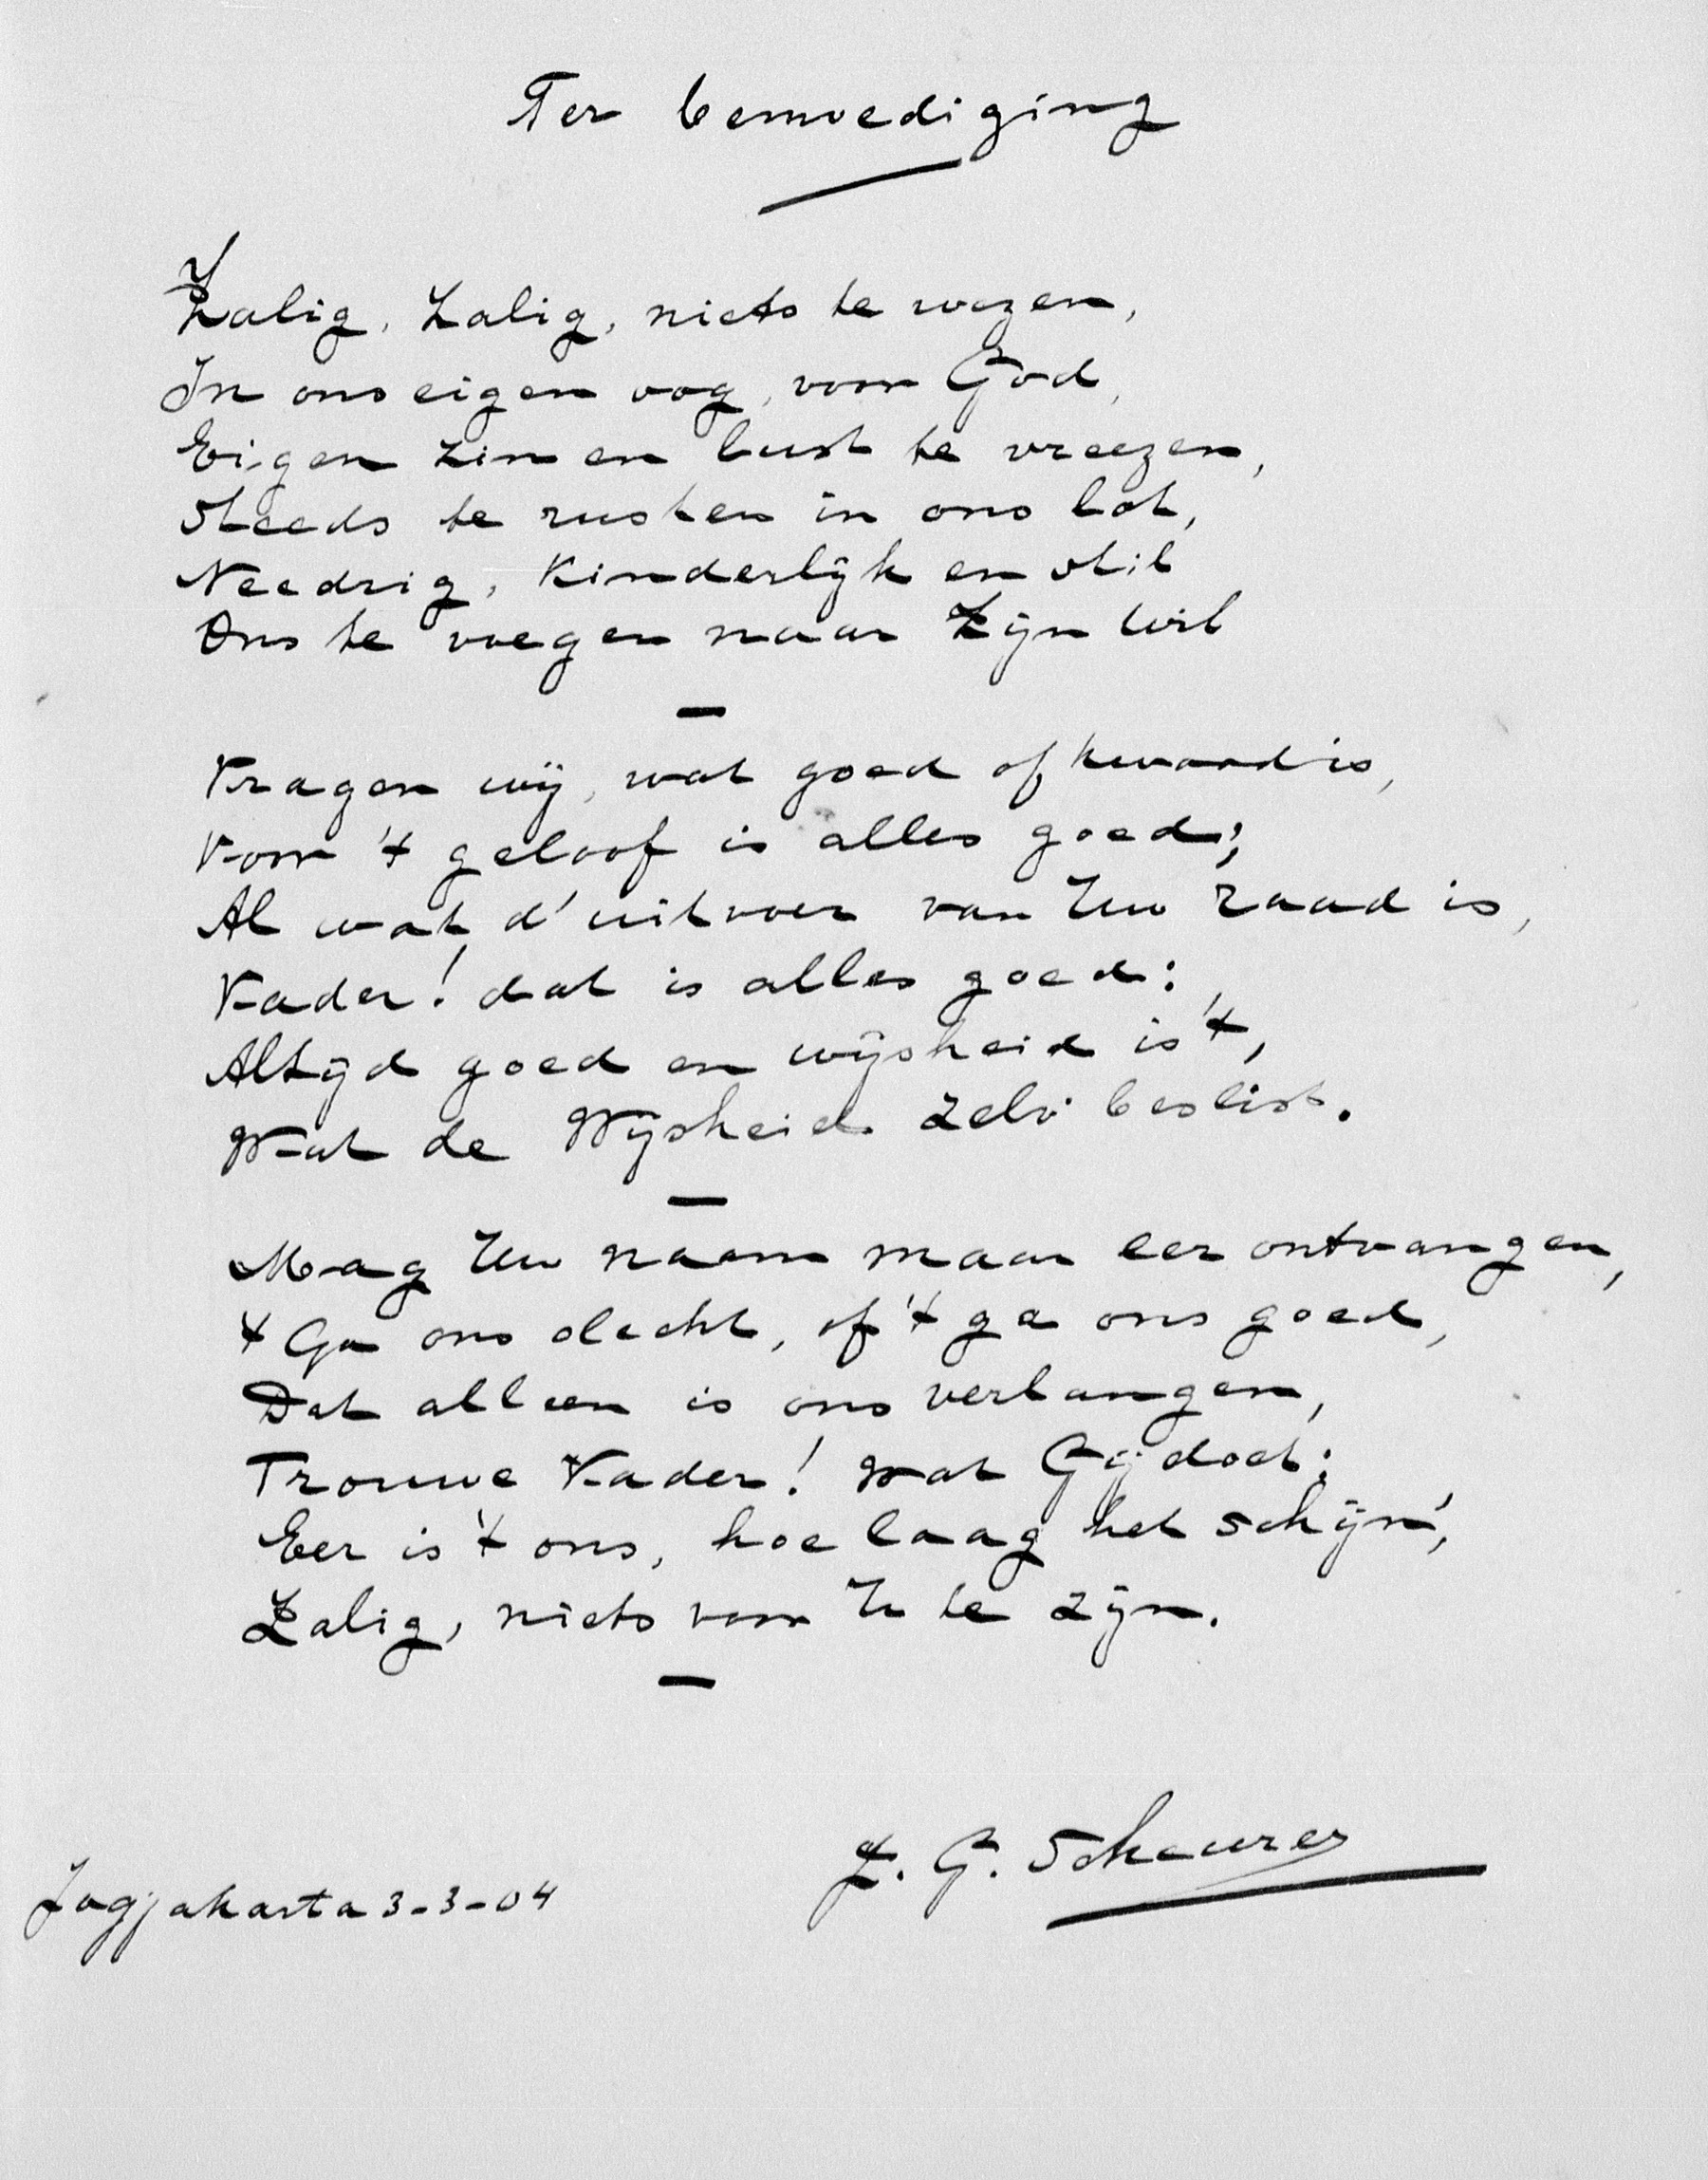 Ter bemoediging
Zalig, Zalig, niets te wezen,
In ons eigen oog, voor God,
Eigen zin en lust te vreezen,
Steeds te rusten in ons lot,
Needrig, Kinderlijk en stil
Ons te voegen naar Zijn wil
Vragen wij, wat goed of kwaad is,
Voor 't geloof is alles goed;
Al wat d' uitvoer van Uw raad is,
Vader! dat is alles goed:
Altijd goed en wijsheid is 't,
Wat de Wijsheid zelv' beslist.
Mag Uw naam maar eer ontvangen,
't Ga ons slecht, of 't ga ons goed,
Dat alleen is ons verlangen,
Trouwe Vader! wat Gij doet;
Eer is 't ons, hoe laag het schijn',
Zalig, niets voor U te zijn.
J. G. Scheurer
Jogjakarta 3-3-04